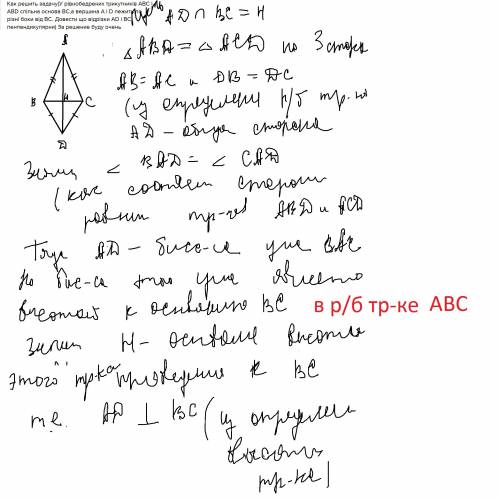 Как решить задачу(У рівнобедрених трикутників ABC і
ABD спільна основа BC,а вершина A і D лежить
різні боки від BC. Довести що відрізки AD і BC
пенпендикулярни) За решение буду очень
AD ∩ BC = H
△ABD = △ACD по 3 сторон
AB = AC и DB = DC
(из определени р/б тр-ка
AD – общая сторона
A
B H C
D
Значит ∠ BAD = ∠ CAD
(как соответ сторон
равных тр-ков ABD и ACD
Тогда AD – бисс-са угла BAC
Но бис-са этого угла является
высотой к основанию BC в р/б тр-ке ABC
Значит H – основание высоты
этого тр-ка проведённо к BC
т.е. AD ⊥ BC (из определен
высоты
тр-ка)